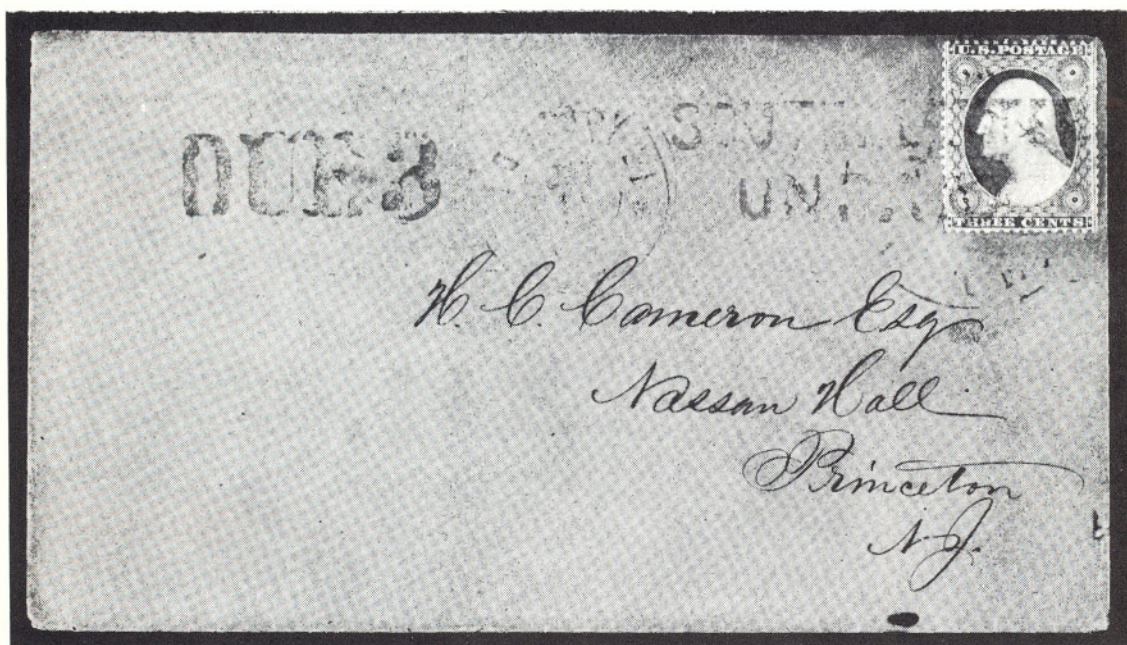 U.S. POSTAGE
THREE CENTS
DUE 3
H. C. Cameron Esq
Nassau Hall
Princeton
N. J.